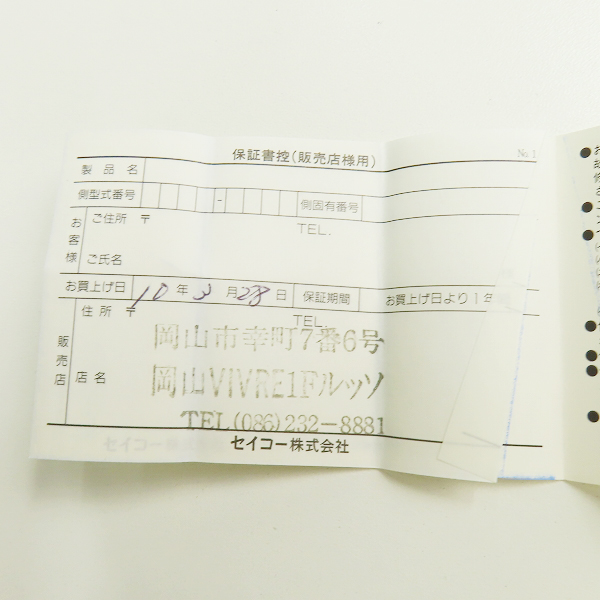 保証書控(販売店様用) No.1
製品名
側型式番号 - 側固有番号
お客様
ご住所 〒
TEL.
ご氏名
お買上げ日 10年3月28日 保証期間 お買上げ日より1年
販売店
住所 TEL.
岡山市幸町7番6号
店名 岡山VIVRE1Fルッソ
TEL(086)232-8881
セイコー株式会社